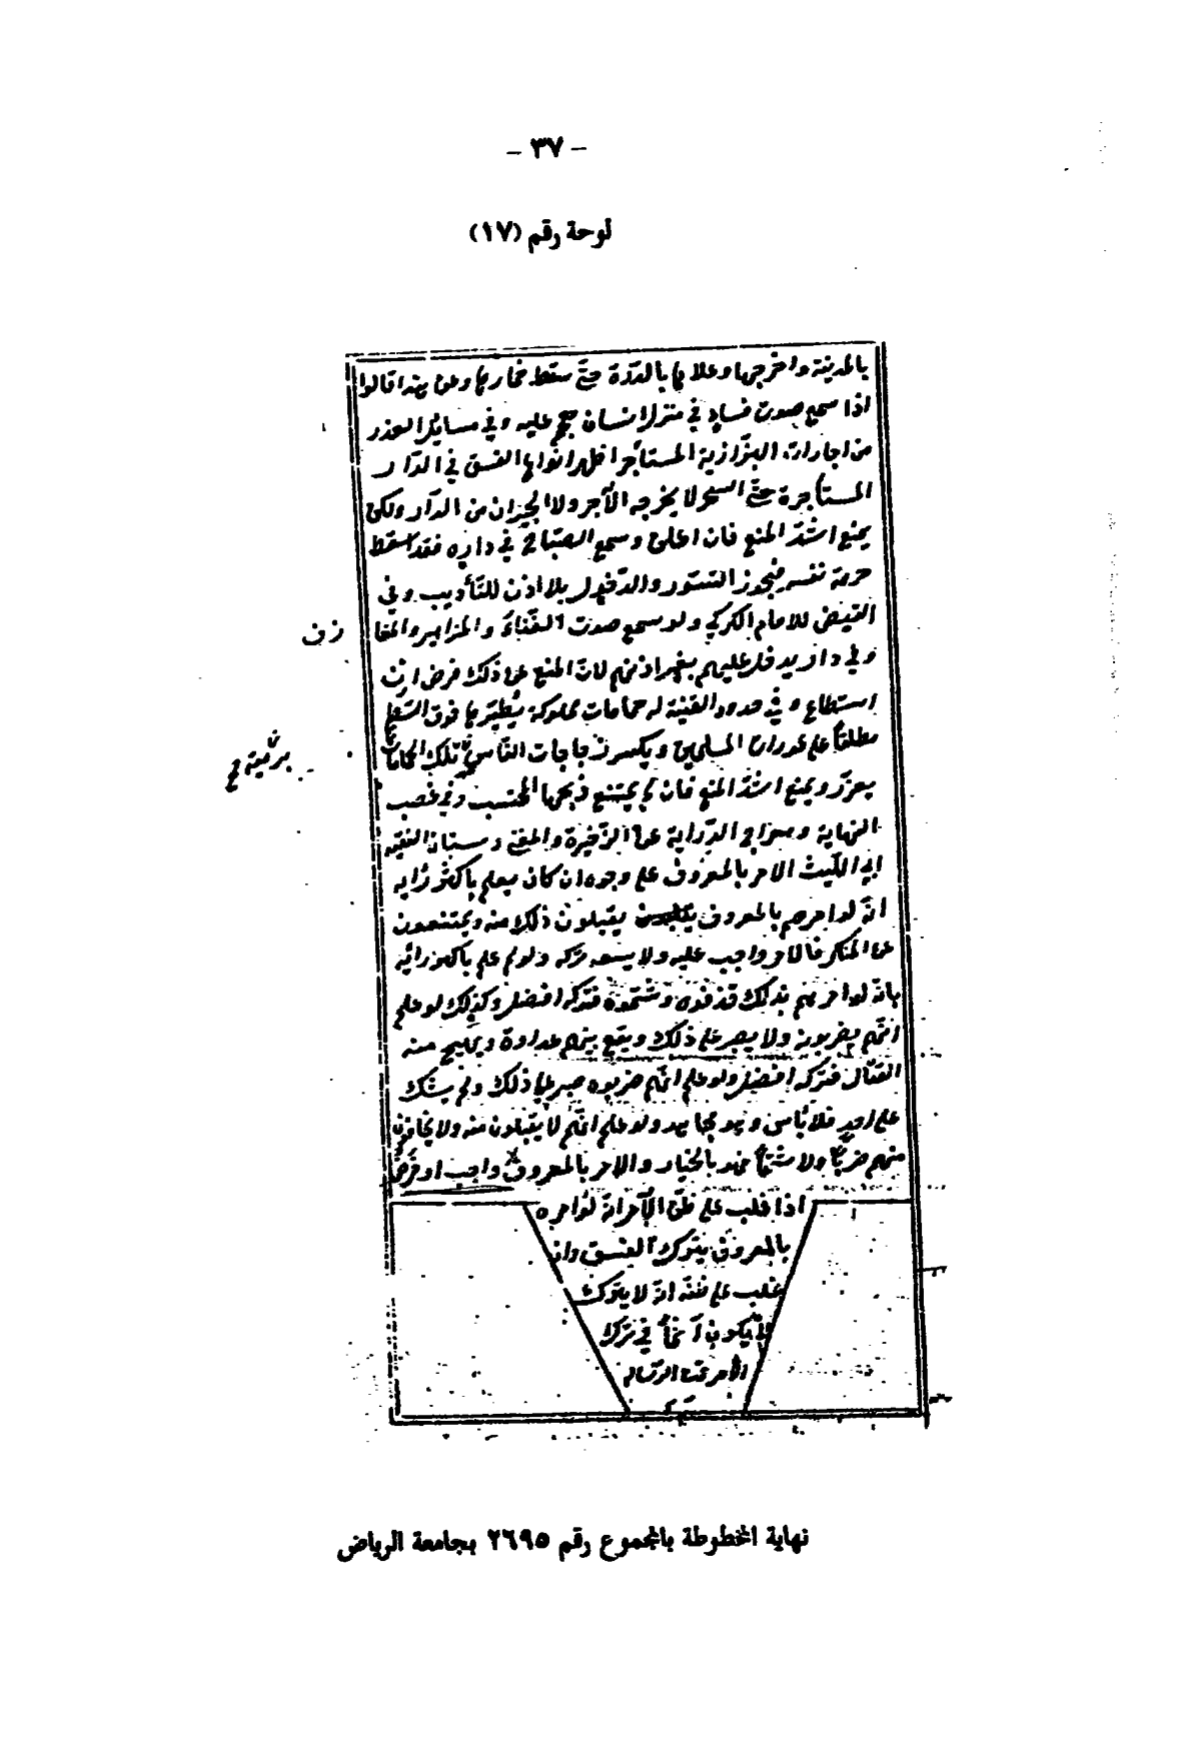 - ٣٧ -
لوحة رقم (١٧)
بالمدينة واخرجها وعلاها بالدرة حتى سقط خمارها وعن هذا قالوا
اذا سمع صوت فساد في منزل انسان هجم عليه وفي مسائل العذر
من اجارات البزازية المستأجر اظهر انواع الفسق في الدار
المستأجرة حتى السحر لا يخرجه الآجر ولا الجيران من الدار ولكن
يمنع اشد المنع فان اعلن وسمع الصياح في داره فقد اسقط
حرمة نفسه فيجوز التسور والدخول بلا اذن للتأديب وفي
الفيض للامام الكركي ولو سمع صوت الغناء والمزامير والمعا
زف
وفي دار يدخل عليهم بغير اذنهم لان المنع عن ذلك فرض ان
استطاع وفي حدود القنية له حمامات مملوكة يطيرها فوق السطح
مطلعا على عورات المسلمين ويكسر زجاجات الناس تلك الحمامات
برميه
يعزر ويمنع اشد المنع فان لم يمتنع ذبحها المحتسب وفي غصب
النهاية ومعراج الدراية عن الذخيرة والمغني وبستان الفقيه
ابي الليث الامر بالمعروف على وجوه ان كان يعلم باكثر رأيه
انه لو امرهم بالمعروف يقبلون ذلك منه ويمتنعون
عن المنكر فالامر واجب عليه ولا يسعه تركه ولو علم باكثر رأيه
بانه لو امرهم بذلك قذفوه وشتموه فتركه افضل وكذلك لو علم
انهم يضربونه ولا يصبر على ذلك ويقع بينهم عداوة ويهيج منه
القتال فتركه افضل ولو علم انهم ضربوه صبر على ذلك ولم يشك
على احد فلا بأس وهو مجاهد ولو علم انهم لا يقبلون منه ولا يخاف
منهم ضربا ولا شتما فهو بالخيار والامر بالمعروف واجب او فرض
اذا غلب على ظن الآمر انه لو امره
بالمعروف يترك الفسق وان
غلب على ظنه انه لا يتركه
لا يكون آثما في ترك
الأمر تمت الرسالة
نهاية المخطوطة بالمجموع رقم ٢٦٩٥ بجامعة الرياض